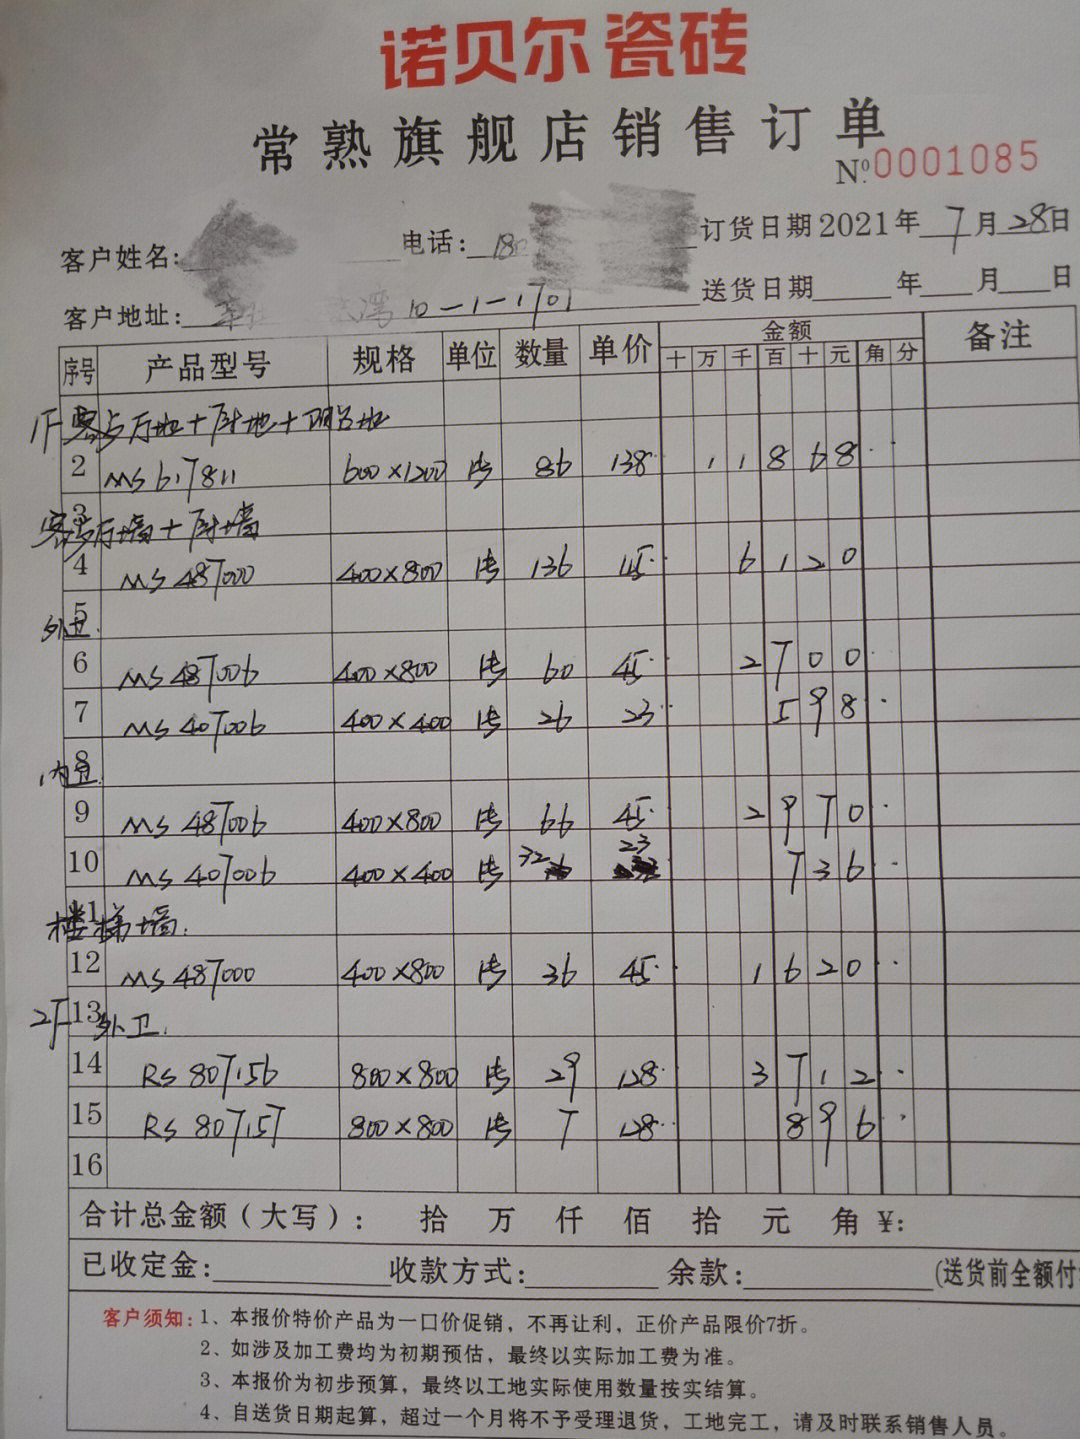 诺贝尔瓷砖
常熟旗舰店销售订单
№ 0001085
客户姓名: 电话: 180 订货日期 2021年 7月 28日
客户地址: 湾 10-1-1701 送货日期 年 月 日
序号 产品型号 规格 单位 数量 单价 金额 备注
十 万 千 百 十 元 角 分
1F 客厅地+厨地+阳台地
2 MS617811 600×1200 片 86 138 11868
3 客厅墙+厨墙
4 MS487000 400×800 片 136 45 6120
5 外卫
6 MS487006 400×800 片 60 45 2700
7 MS407006 400×400 片 26 23 598
8 内卫
9 MS487006 400×800 片 66 45 2970
10 MS407006 400×400 片 32 23 736
11 楼梯墙
12 MS487000 400×800 片 36 45 1620
13 2F 外卫
14 RS807156 800×800 片 29 128 3712
15 RS807157 800×800 片 7 128 896
16
合计总金额(大写): 拾 万 仟 佰 拾 元 角 ¥:
已收定金: 收款方式: 余款: (送货前全额付
客户须知: 1、本报价特价产品为一口价促销,不再让利,正价产品限价7折。
2、如涉及加工费均为初期预估,最终以实际加工费为准。
3、本报价为初步预算,最终以工地实际使用数量按实结算。
4、自送货日期起算,超过一个月将不予受理退货,工地完工,请及时联系销售人员。